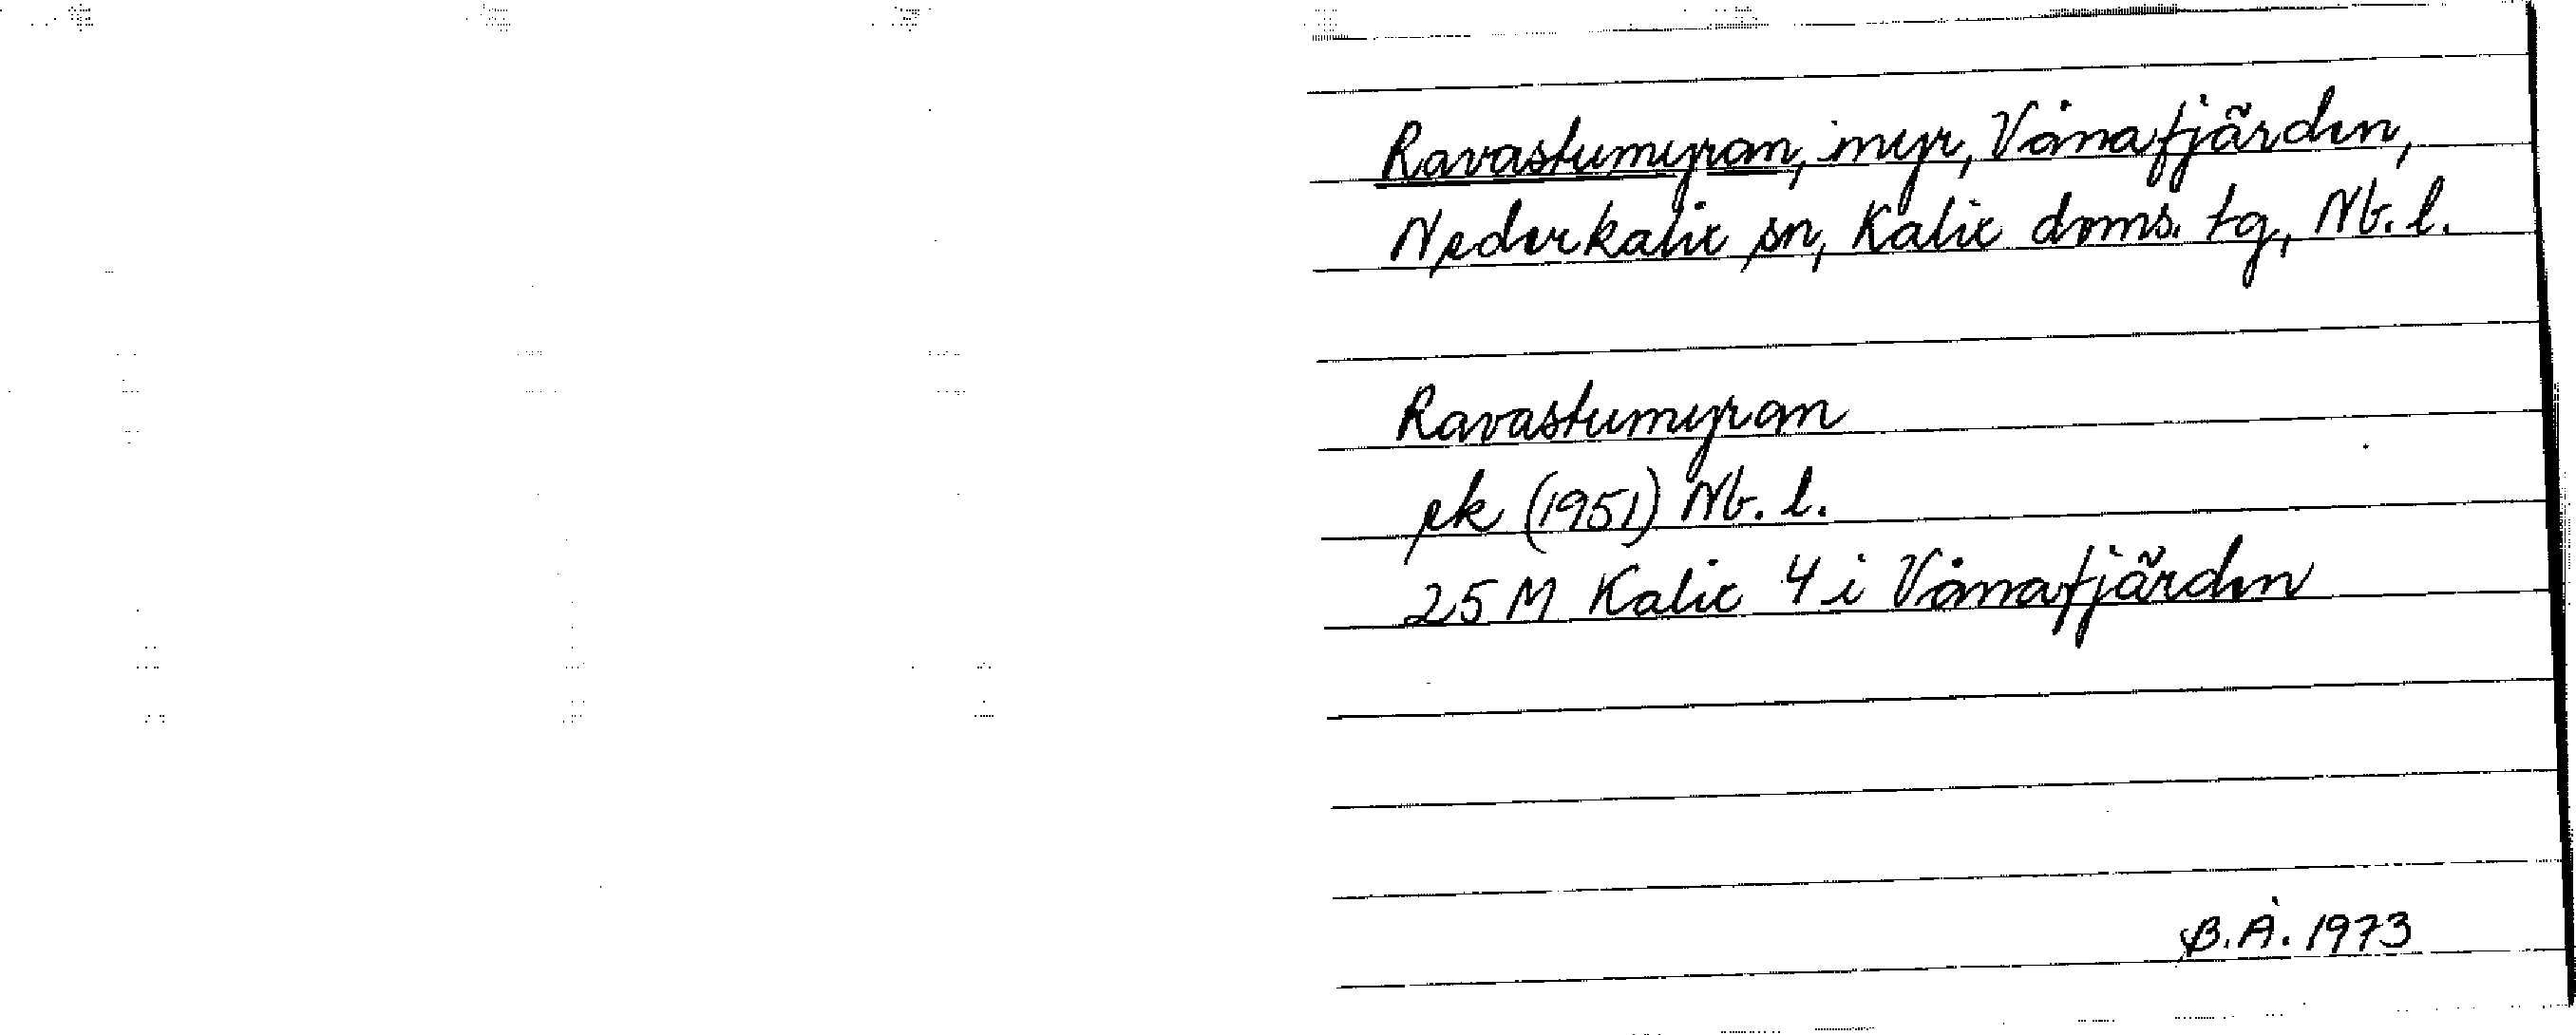 Ravastumyran, myr, Vånafjärden,
Nederkalix sn, Kalix doms. tg, Nb. l.
Ravastumyran
ek (1951) Nb. l.
25 M Kalix 4 i Vånafjärden
B.Å. 1973